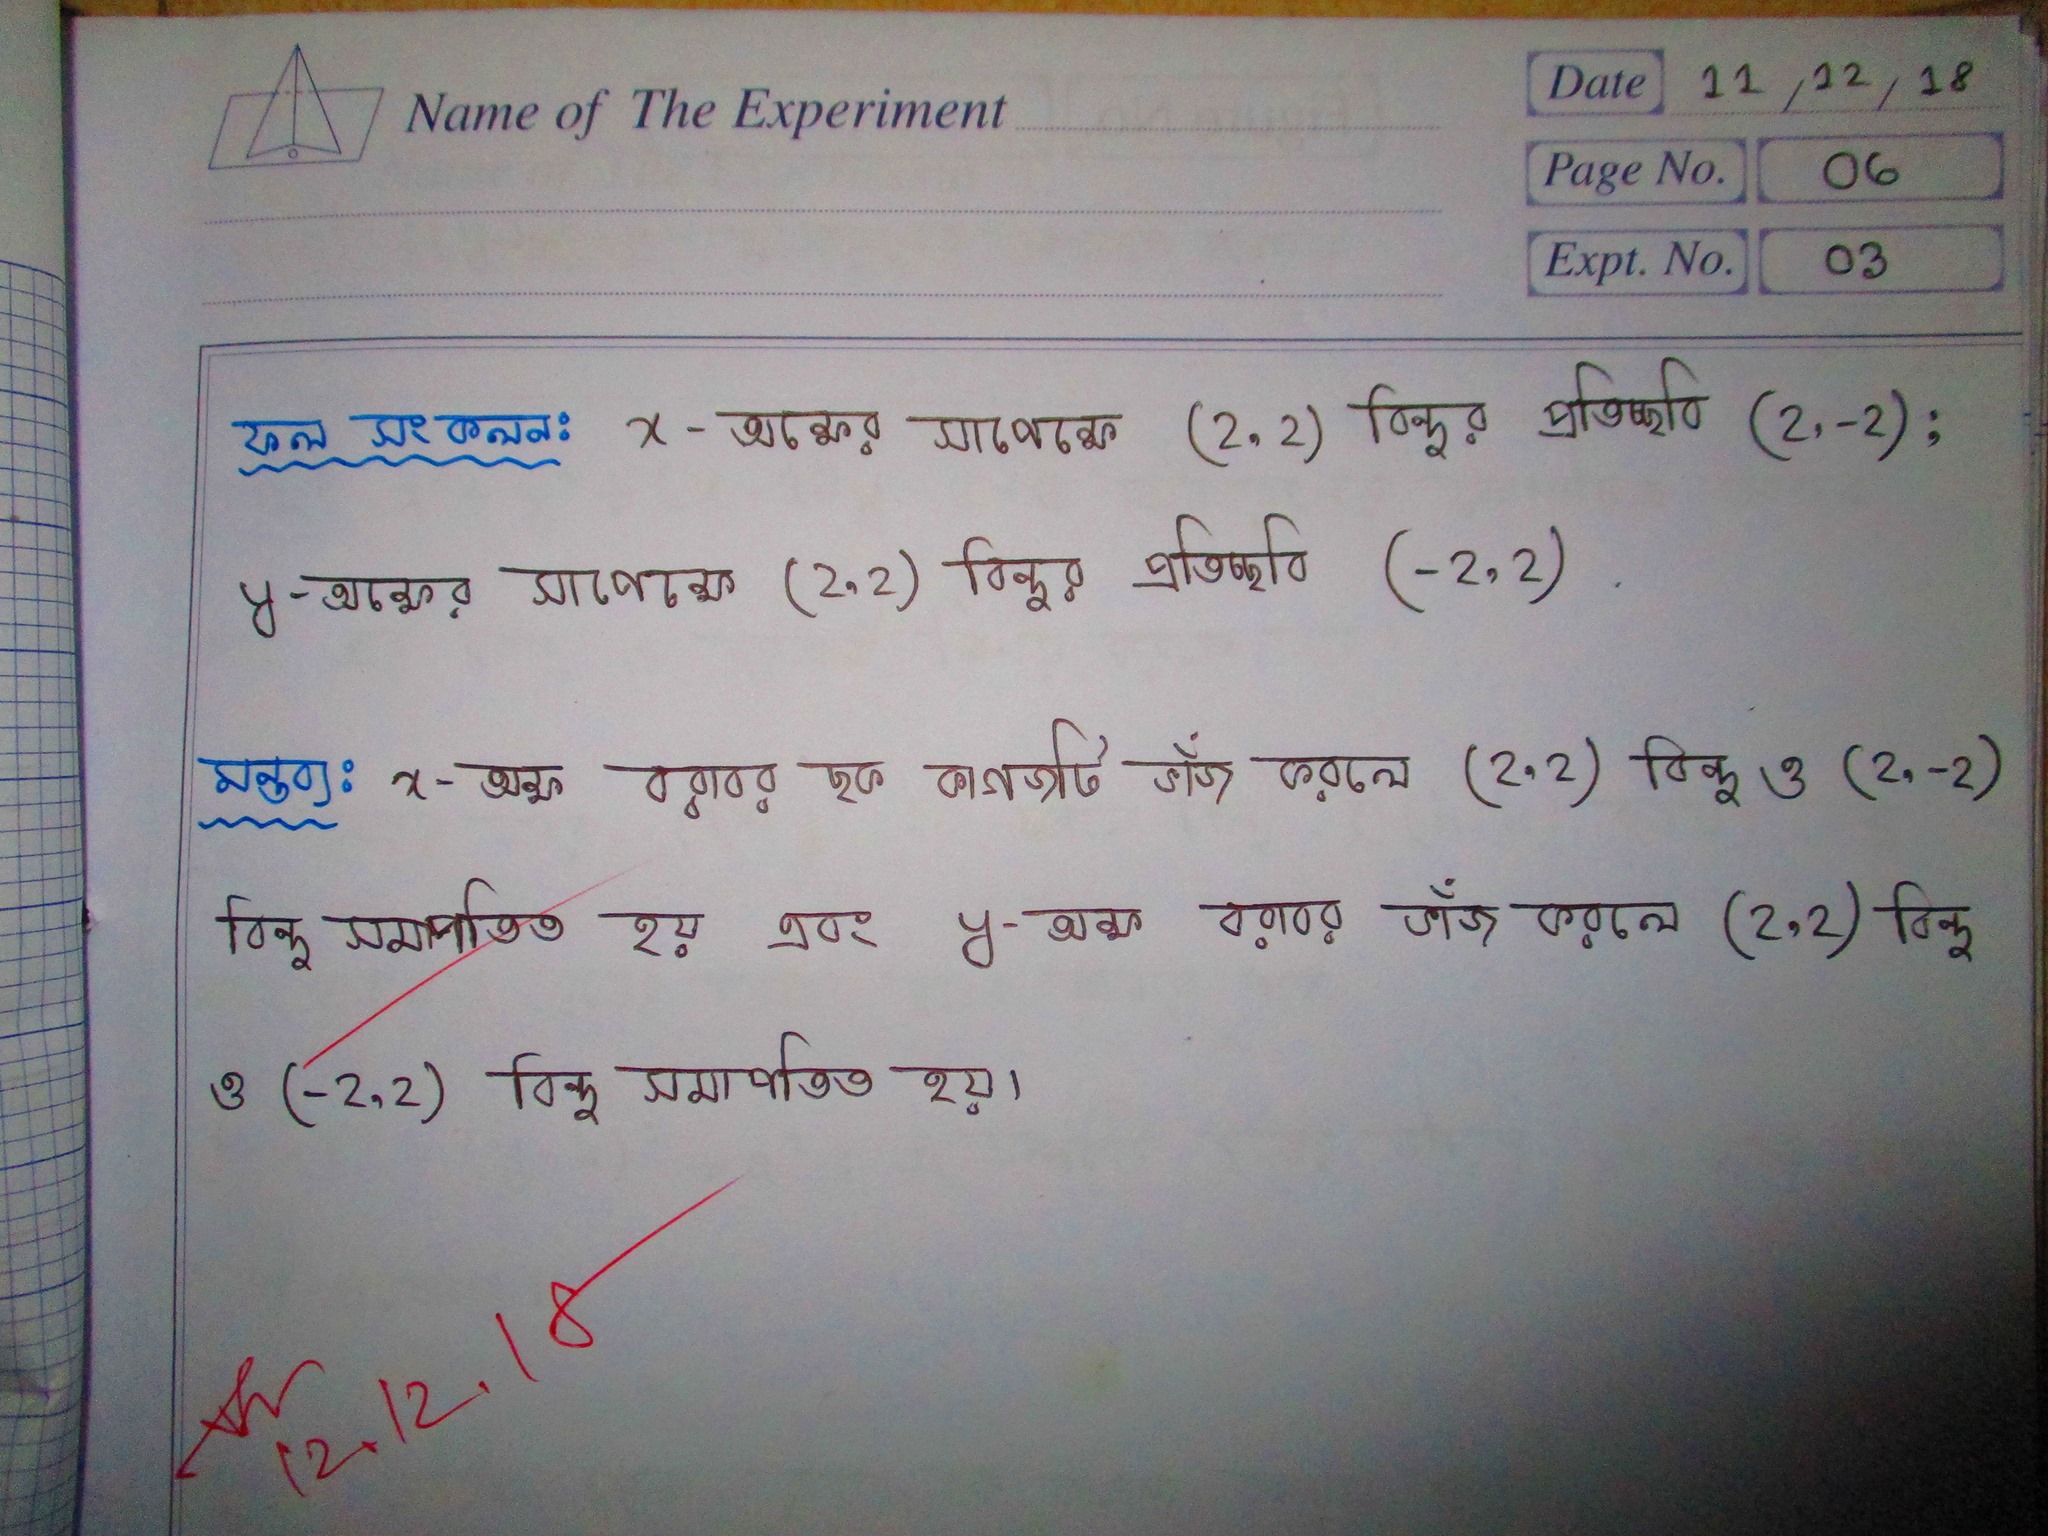 Name of The Experiment
Date 11/12/18
Page No. 06
Expt. No. 03
ফল সংকলনঃ x-অক্ষের সাপেক্ষে (2,2) বিন্দুর প্রতিচ্ছবি (2,-2);
y-অক্ষের সাপেক্ষে (2,2) বিন্দুর প্রতিচ্ছবি (-2,2).
মন্তব্যঃ x-অক্ষ বরাবর ছক কাগজটি ভাঁজ করলে (2,2) বিন্দু ও (2,-2)
বিন্দু সমাপতিত হয় এবং y-অক্ষ বরাবর ভাঁজ করলে (2,2) বিন্দু
ও (-2,2) বিন্দু সমাপতিত হয়।
12.12.18